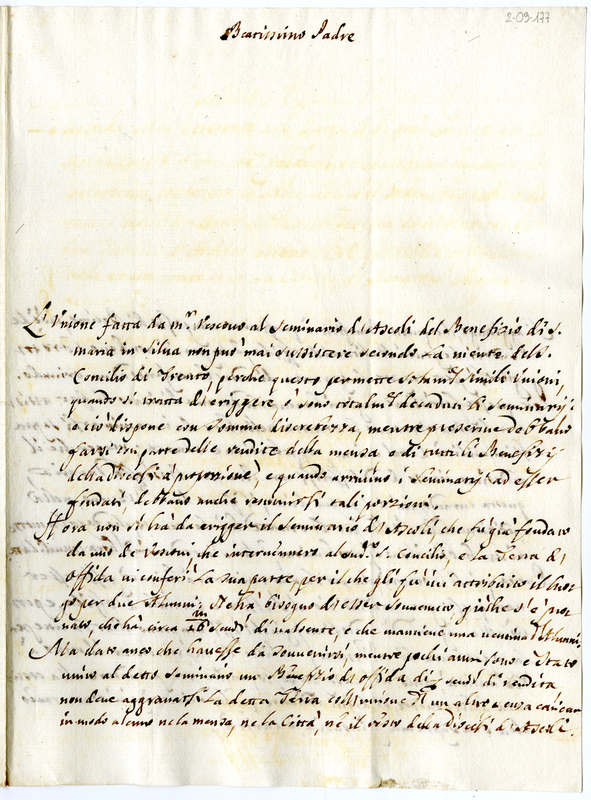 2-09-177
Beatissimo Padre
L'Unione fatta da m.r Vescovo al Seminario d'Ascoli del Benefizio di S.
maria in Silva non può mai sussistere secondo la mente del S.
Concilio di Trento, perche questo permette solam.te simili Unioni,
quando si tratta di eriggere, ò sono totalm.te decaduti li Seminarij;
e ciò dispone con somma discretezza, mentre prescrive debbano
farsi parte delle rendite della mensa, o di tutti li Benefizij
della diocesi à proporzione, e quando arrivino i Seminarij ad esser
fondati, debbano anche resti­tuirsi tali porzioni.
Hora non si ha da erigger il Seminario di Ascoli, che fù già fondato
da uno de Vescovi, che intervennero al sud.o S. Concilio, e la Terra di
Offida vi conferì la sua parte, per il che gli fù ivi attribuito il luo
go per due Alunni, Ne hà bisogno di esser sovvenuto, giache s'è
nato, che hà circa scudi di valsente, e che mantiene una ventina d'Alunni.
Ma dato anco che havesse da sovvenirsi, mentre pochi anni sono è stato
unito al detto Seminario un Benefizio di Offida di scudi di rendita
non deve aggravarsi la detta Terra coll'unione d'un altro senza caricar
in modo alcuno ne la mensa, ne la Città, ne il resto della diocesi d'Ascoli.